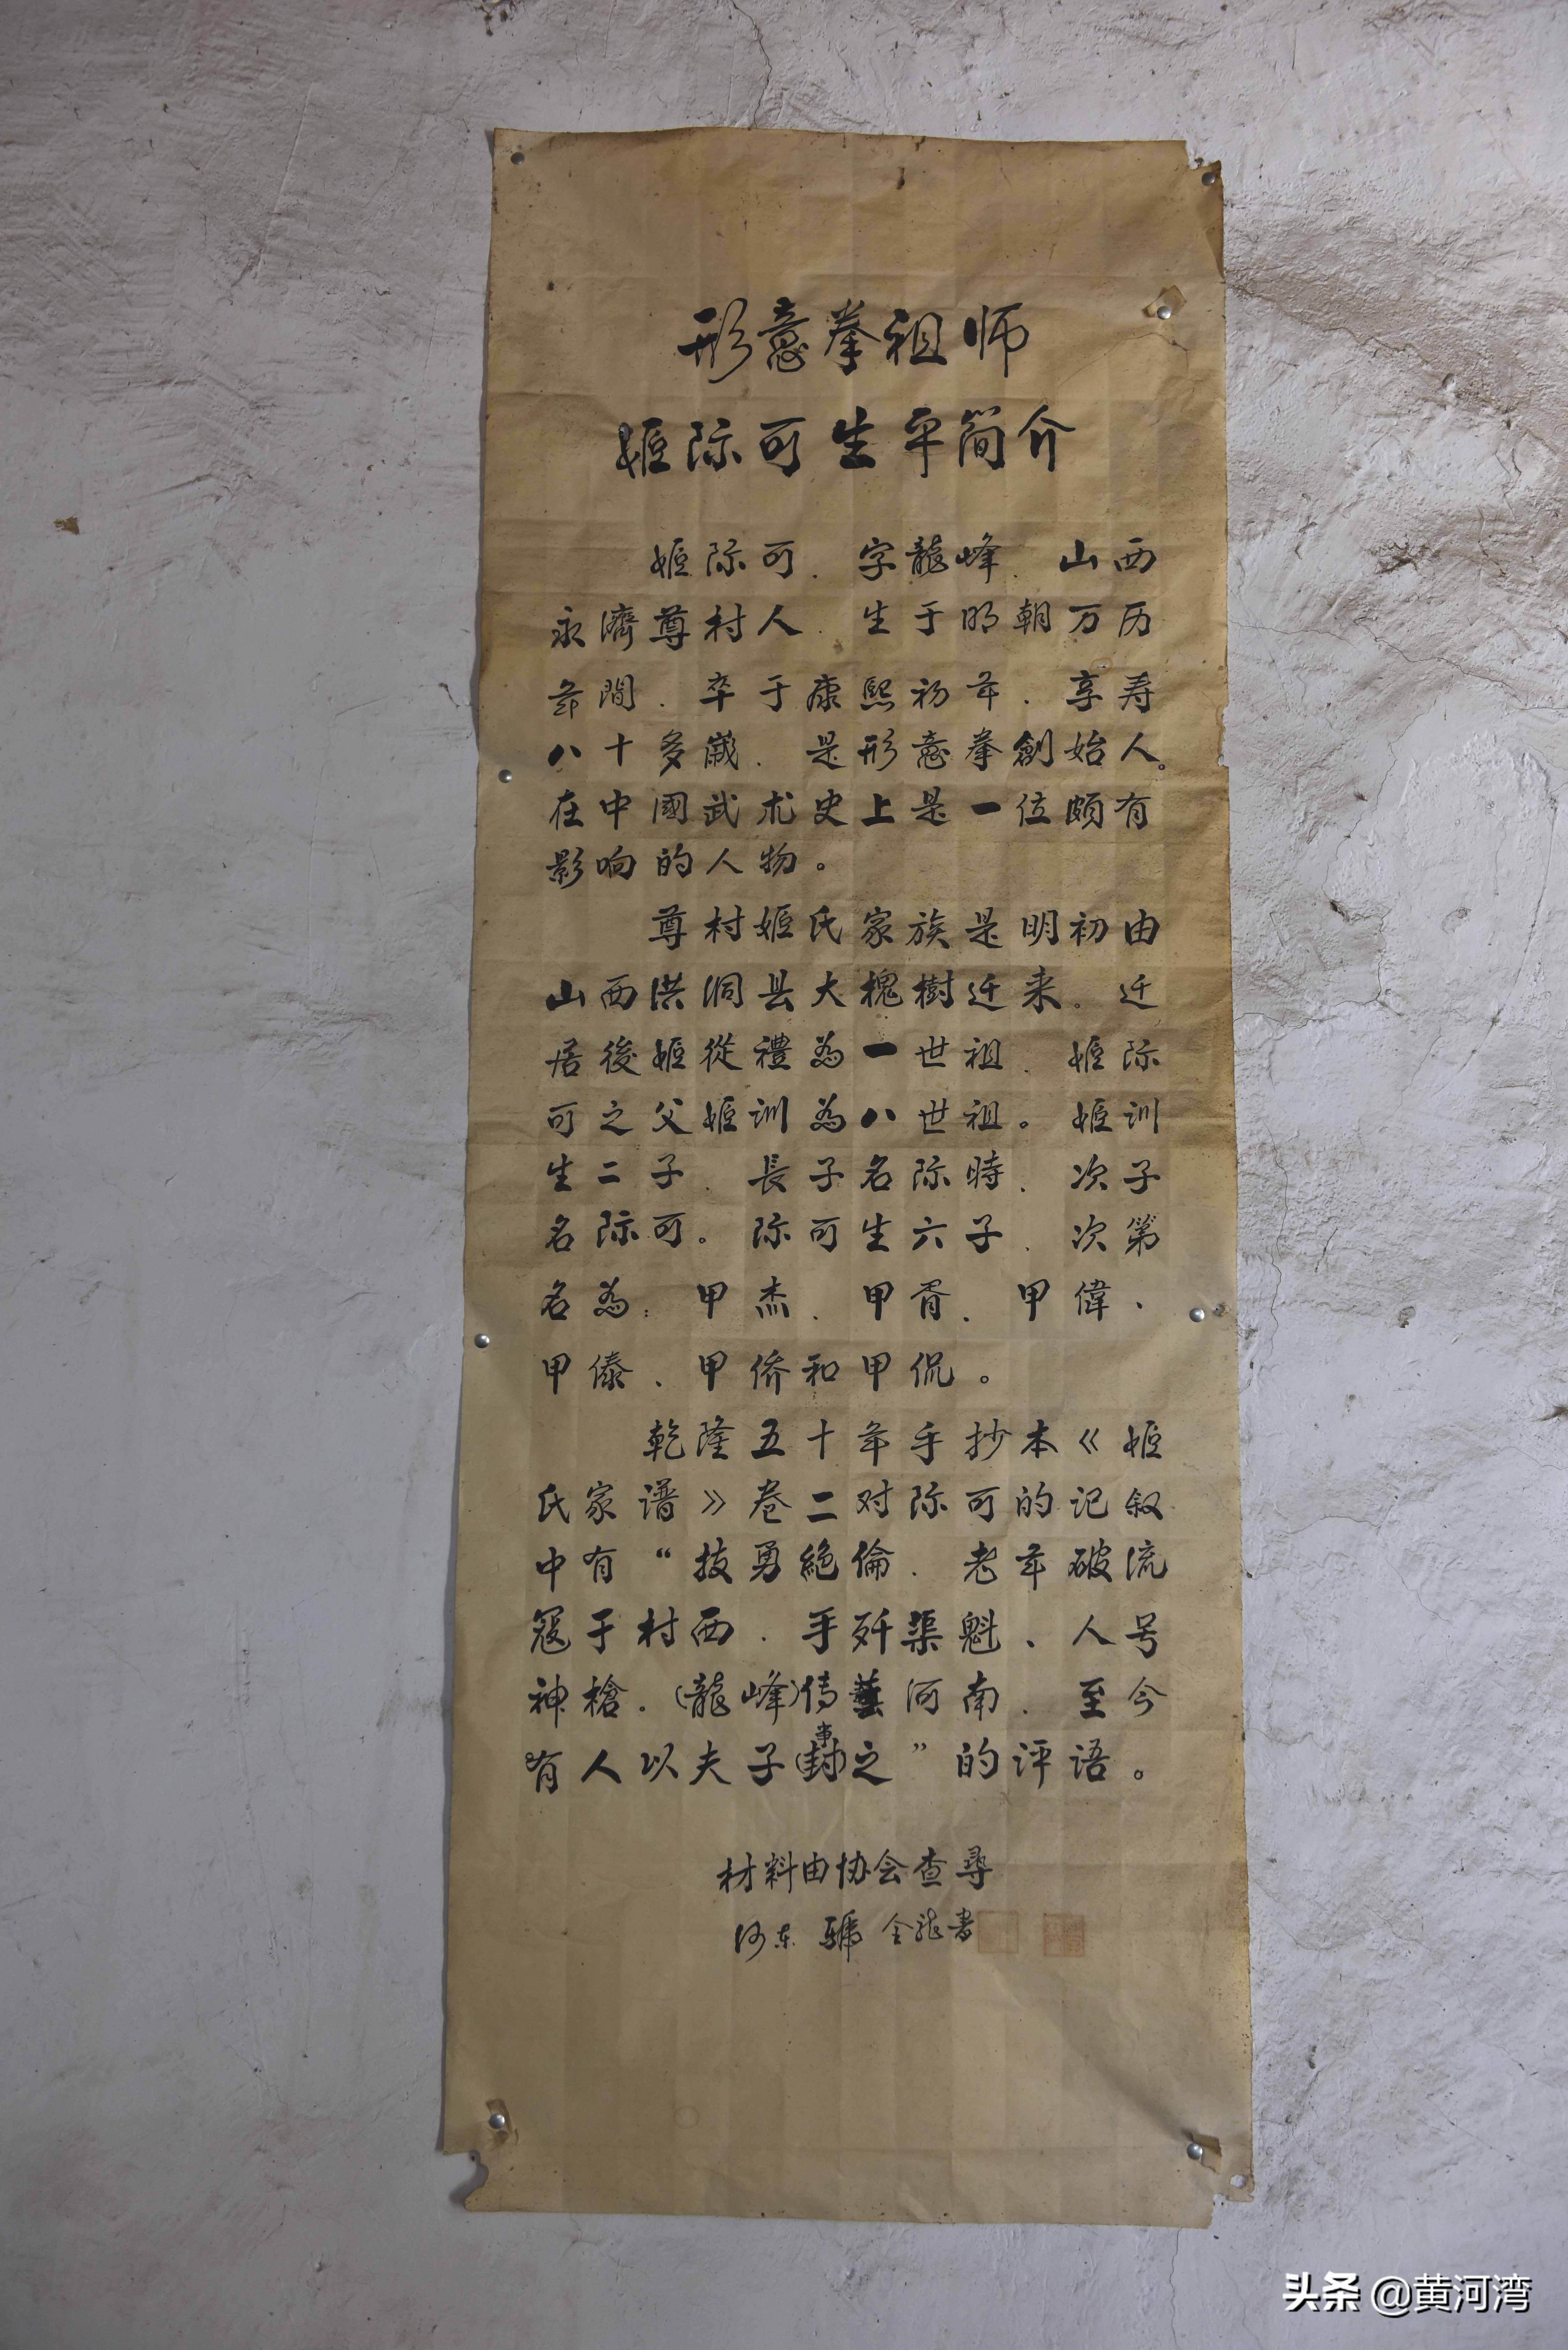 形意拳祖师
姬际可生平简介
姬际可．字龍峰．山西
永濟尊村人．生于明朝万历
年間．卒于康熙初年．享寿
八十多歲．是形意拳創始人。
在中國武术史上是一位頗有
影响的人物。
尊村姬氏家族是明初由
山西洪洞县大槐樹迁来。迁
居後姬從禮為一世祖．姬际
可之父姬训為八世祖。姬训
生二子．長子名际時．次子
名际可。际可生六子．次第
名為：甲杰．甲胥．甲偉、
甲傣、甲侨和甲侃。
乾隆五十年手抄本《姬
氏家谱》卷二对际可的记叙
中有“技勇絶倫．老年破流
寇于村西．手歼渠魁、人号
神槍．（龍峰）传藝河南．至今
有人以夫子（事）之”的评语。
材料由协会查尋
河东 全龍书
头条 @黄河湾